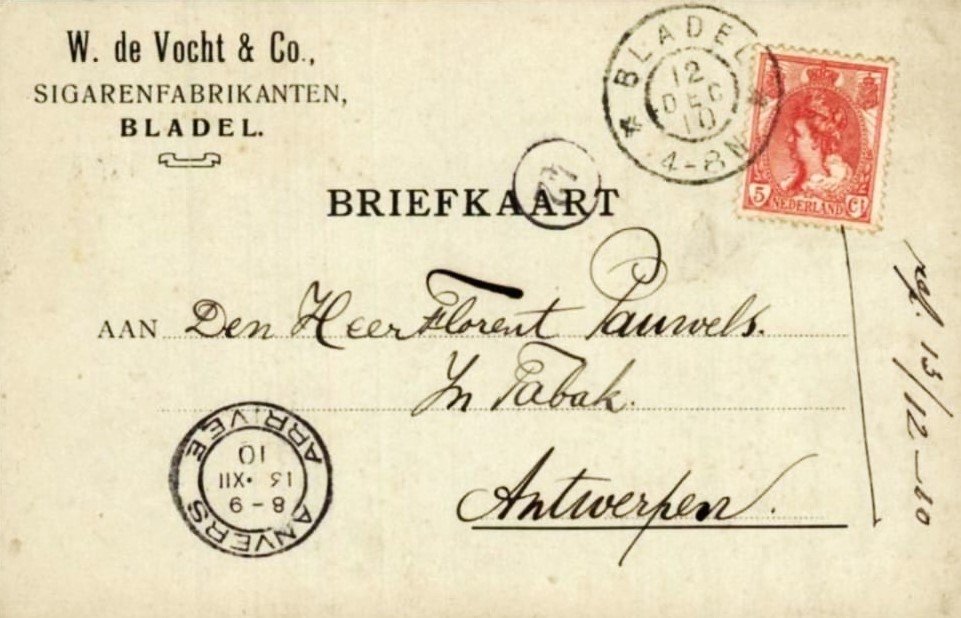 W. de Vocht & Co.,
SIGARENFABRIKANTEN,
BLADEL.
BLADEL
12
DEC
10
4-8N
5 NEDERLAND Ct
BRIEFKAART
AAN Den Heer Florent Pauwels.
In Tabak.
Antwerpen.
ANVERS
8-9
13 · XII
10
ARRIVEE
13/12-10